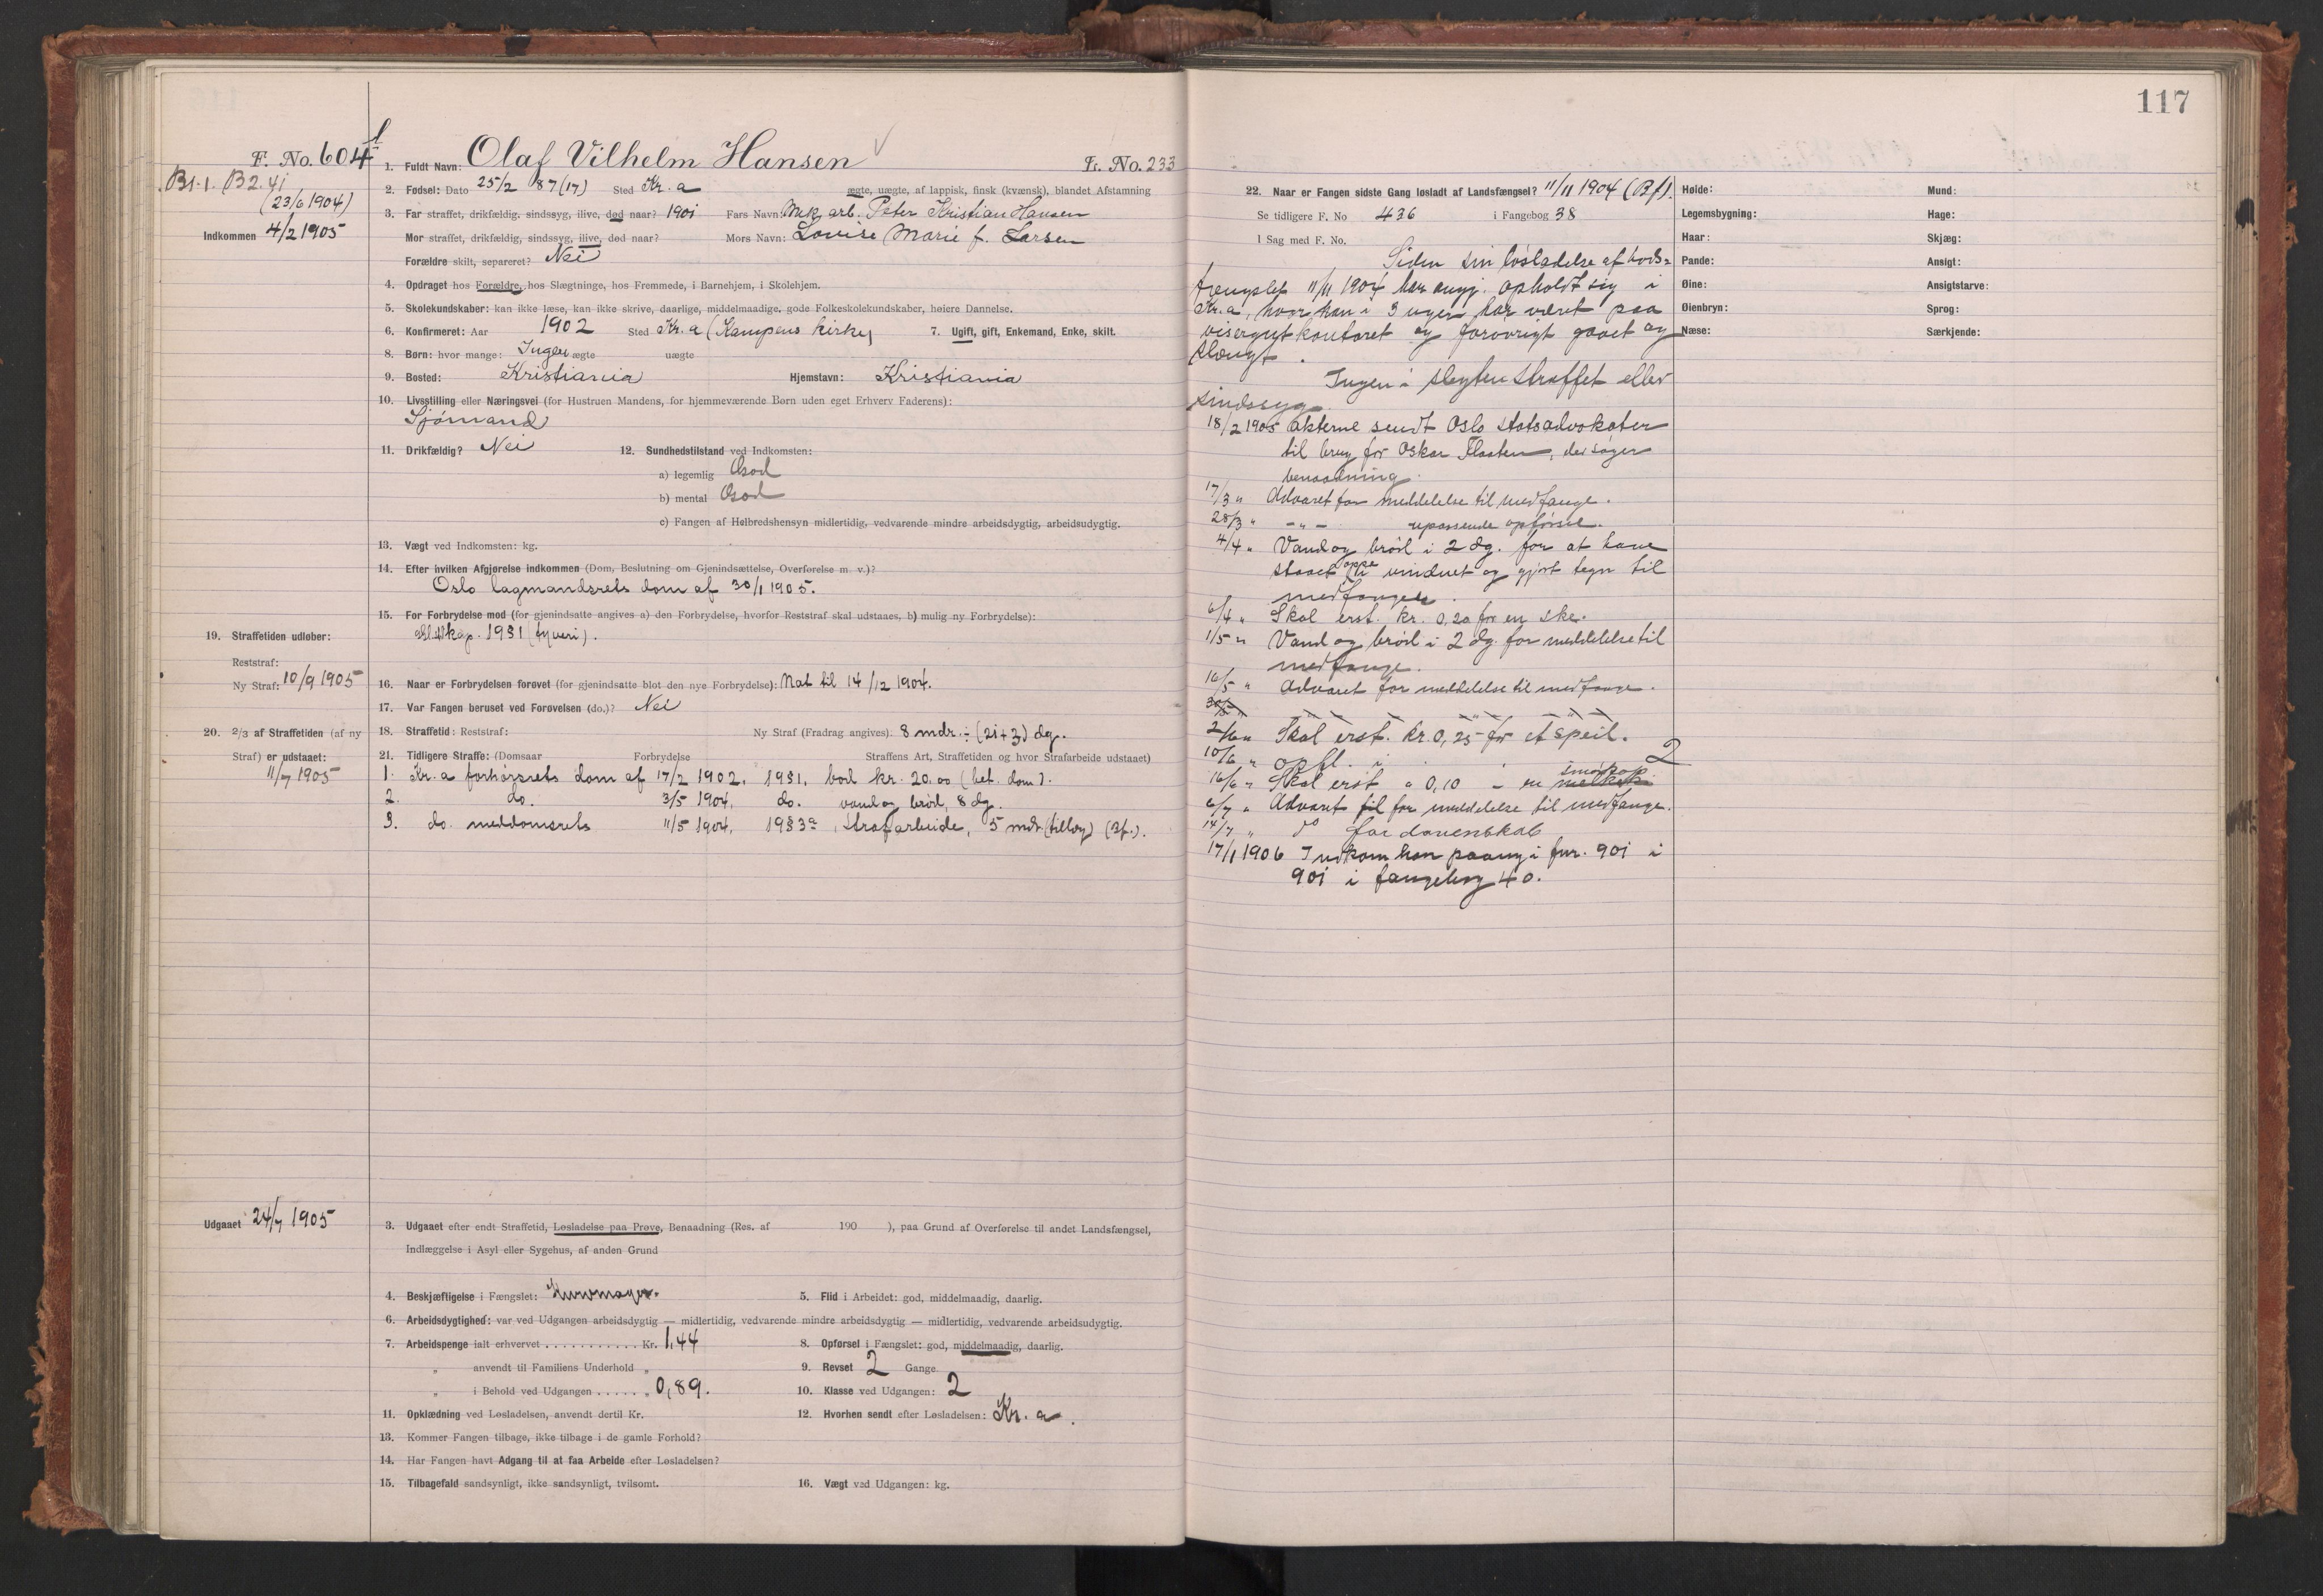 117
F. No. 604
1. Fuldt Navn: Olaf Vilhelm Hansen L. No. 233
B1.1. B2.41
(23/6 1904)
Indkommen 4/2 1905
2. Fødsel: Dato 25/2 87 (17) Sted Kr.a ægte, uægte, af lappisk, finsk (kvænsk), blandet Afstamning
3. Far straffet, drikfældig, sindssyg, ilive, død naar? 1901 Fars Navn: Mek. arb. Peter Kristian Hansen
Mor straffet, drikfældig, sindssyg, ilive, død naar? Mors Navn: Lovise Marie f. Larsen
Forældre skilt, separeret? Nei
4. Opdraget hos Forældre, hos Slægtninge, hos Fremmede, i Barnehjem, i Skolehjem.
5. Skolekundskaber: kan ikke læse, kan ikke skrive, daarlige, middelmaadige, gode Folkeskolekundskaber, høiere Dannelse.
6. Konfirmeret: Aar 1902 Sted Kr.a (Kampens kirke) 7. Ugift, gift, Enkemand, Enke, skilt.
8. Børn: hvor mange: Ingen ægte uægte
9. Bosted: Kristiania Hjemstavn: Kristiania
10. Livsstilling eller Næringsvei (for Hustruen Mandens, for hjemmeværende Børn uden eget Erhverv Faderens):
Sjømand
11. Drikfældig? Nei 12. Sundhedstilstand ved Indkomsten:
a) legemlig God
b) mental God
c) Fangen af Helbredshensyn midlertidig, vedvarende mindre arbeidsdygtig, arbeidsudygtig.
13. Vægt ved Indkomsten: kg.
14. Efter hvilken Afgjørelse indkommen (Dom, Beslutning om Gjenindsættelse, Overførelse m. v.)?
Oslo lagmandsrets dom af 30/1 1905.
15. For Forbrydelse mod (for gjenindsatte angives a) den Forbrydelse, hvorfor Reststraf skal udstaaes, b) mulig ny Forbrydelse):
kap. 19 § 1 (tyveri).
19. Straffetiden udløber:
Reststraf:
Ny Straf: 10/9 1905
16. Naar er Forbrydelsen forøvet (for gjenindsatte blot den nye Forbrydelse): Nat til 14/12 1904.
17. Var Fangen beruset ved Forøvelsen (do.)? Nei
20. 2/3 af Straffetiden (af ny
Straf) er udstaaet:
11/7 1905
18. Straffetid: Reststraf: Ny Straf (Fradrag angives): 8 mdr. ÷ (21+3) dg.
21. Tidligere Straffe: (Domsaar Forbrydelse Straffens Art, Straffetiden og hvor Strafarbeide udstaaet)
1. Kr.a forhørsrets dom af 17/2 1902, 19 § 1, bod kr. 20.00 (bet. dom).
2. do. 3/5 1904, do. vand og brød, 8 dg.
3. do. meddomsrets 11/5 1904, 19 § 3a, strafarbeide, 5 mdr (tillæg) (Bf.).
Udgaaet 24/7 1905
3. Udgaaet efter endt Straffetid, Løsladelse paa Prøve, Benaadning (Res. af 190 ), paa Grund af Overførelse til andet Landsfængsel,
Indlæggelse i Asyl eller Sygehus, af anden Grund
4. Beskjæftigelse i Fængslet: Kurvmager. 5. Flid i Arbeidet: god, middelmaadig, daarlig.
6. Arbeidsdygtighed: var ved Udgangen arbeidsdygtig — midlertidig, vedvarende mindre arbeidsdygtig — midlertidig, vedvarende arbeidsudygtig.
7. Arbeidspenge ialt erhvervet . . . . . . . . . . . Kr. 1,44 8. Opførsel i Fængslet: god, middelmaadig, daarlig.
„ anvendt til Familiens Underhold „ 9. Revset 2 Gange
„ i Behold ved Udgangen . . . . . „ 0,89. 10. Klasse ved Udgangen: 2
11. Opklædning ved Løsladelsen, anvendt dertil Kr. 12. Hvorhen sendt efter Løsladelsen: Kr.a.
13. Kommer Fangen tilbage, ikke tilbage i de gamle Forhold?
14. Har Fangen havt Adgang til at faa Arbeide efter Løsladelsen?
15. Tilbagefald sandsynligt, ikke sandsynligt, tvilsomt. 16. Vægt ved Udgangen: kg.
22. Naar er Fangen sidste Gang løsladt af Landsfængsel? 11/11 1904 (Bf).
Se tidligere F. No 436 i Fangebog 38
I Sag med F. No.
Siden sin løsladelse af bods=
fængslet 11/11 1904 har angj. opholdt sig i
Kr.a, hvor han i 3 uger har været paa
visergutkontoret og forøvrigt gaaet og
slængt.
Ingen i slegten straffet eller
sindssyg.
18/2 1905 Akterne sendt Oslo statsadvokater
til brug for Oskar Flaaten, der søger
benaadning.
17/3 " Advaret for meddelelse til medfange.
28/3 " - " - upassende opførsel.
4/4 " Vand og brød i 2 dg. for at have
staaet oppe i vinduet og gjort tegn til
medfanger.
6/4 " Skal erst. kr. 0,20 for en ske.
1/5 " Vand og brød i 2 dg. for meddelelse til
medfange.
16/5 " Advaret for meddelelse til medfange.
30/5 " " "
2/6 " Skal erst. kr. 0,25 for et speil.
10/6 " opfl. i 2
16/6 " Skal erst " 0,10 - en melkekop smørkop
6/7 " Advaret til for meddelelse til medfange.
14/7 " do for dovenskab
17/1 1906 Indkom han paany i fnr. 901 i
901 i fangebog 40.
Høide: Mund:
Legemsbygning: Hage:
Haar: Skjæg:
Pande: Ansigt:
Øine: Ansigtstarve:
Øienbryn: Sprog:
Næse: Særkjende: